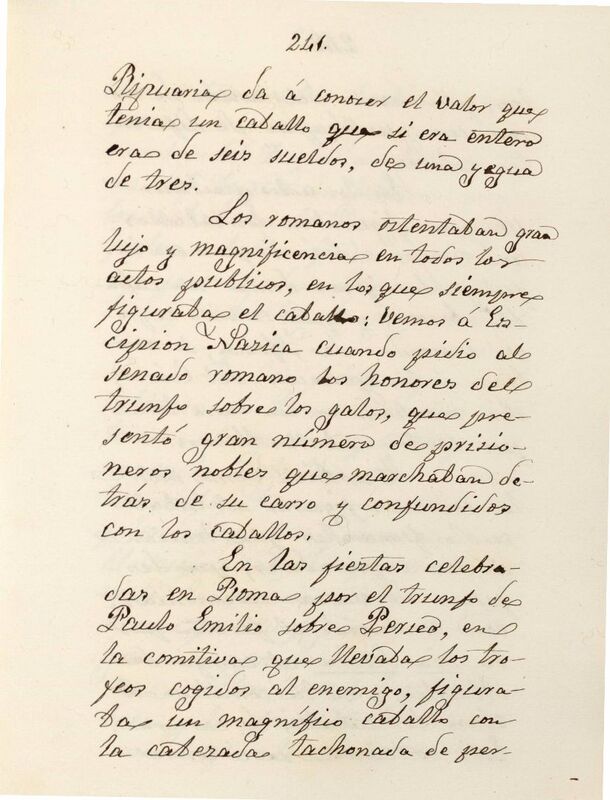 241.
Ripuaria da á conocer el valor que
tenia un caballo que si era entero
era de seis sueldos, de una yegua
de tres.
Los romanos ostentaban gran
lujo y magnificencia en todos los
actos públicos, en los que siempre
figuraba el caballo: Vemos á Es-
cipion Nasica cuando pidio al
senado romano los honores del
triunfo sobre los galos, que pre-
sentó gran número de prisio-
neros nobles que marchaban de-
trás de su carro y confundidos
con los caballos.
En las fiestas celebra-
das en Roma por el triunfo de
Paulo Emilio sobre Perseo, en
la comitiva que llevaba los tro-
feos cogidos al enemigo, figura-
ba un magnífico caballo con
la cabezada tachonada de per-